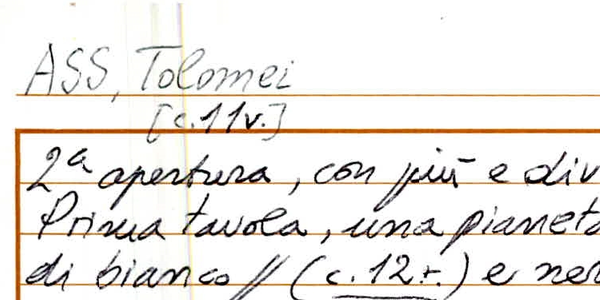 ASS, Tolomei
[c.11v.]
2ª apertura, con più e div
Prima tavola, una pianeta
di bianco // (c.12r.) e ner